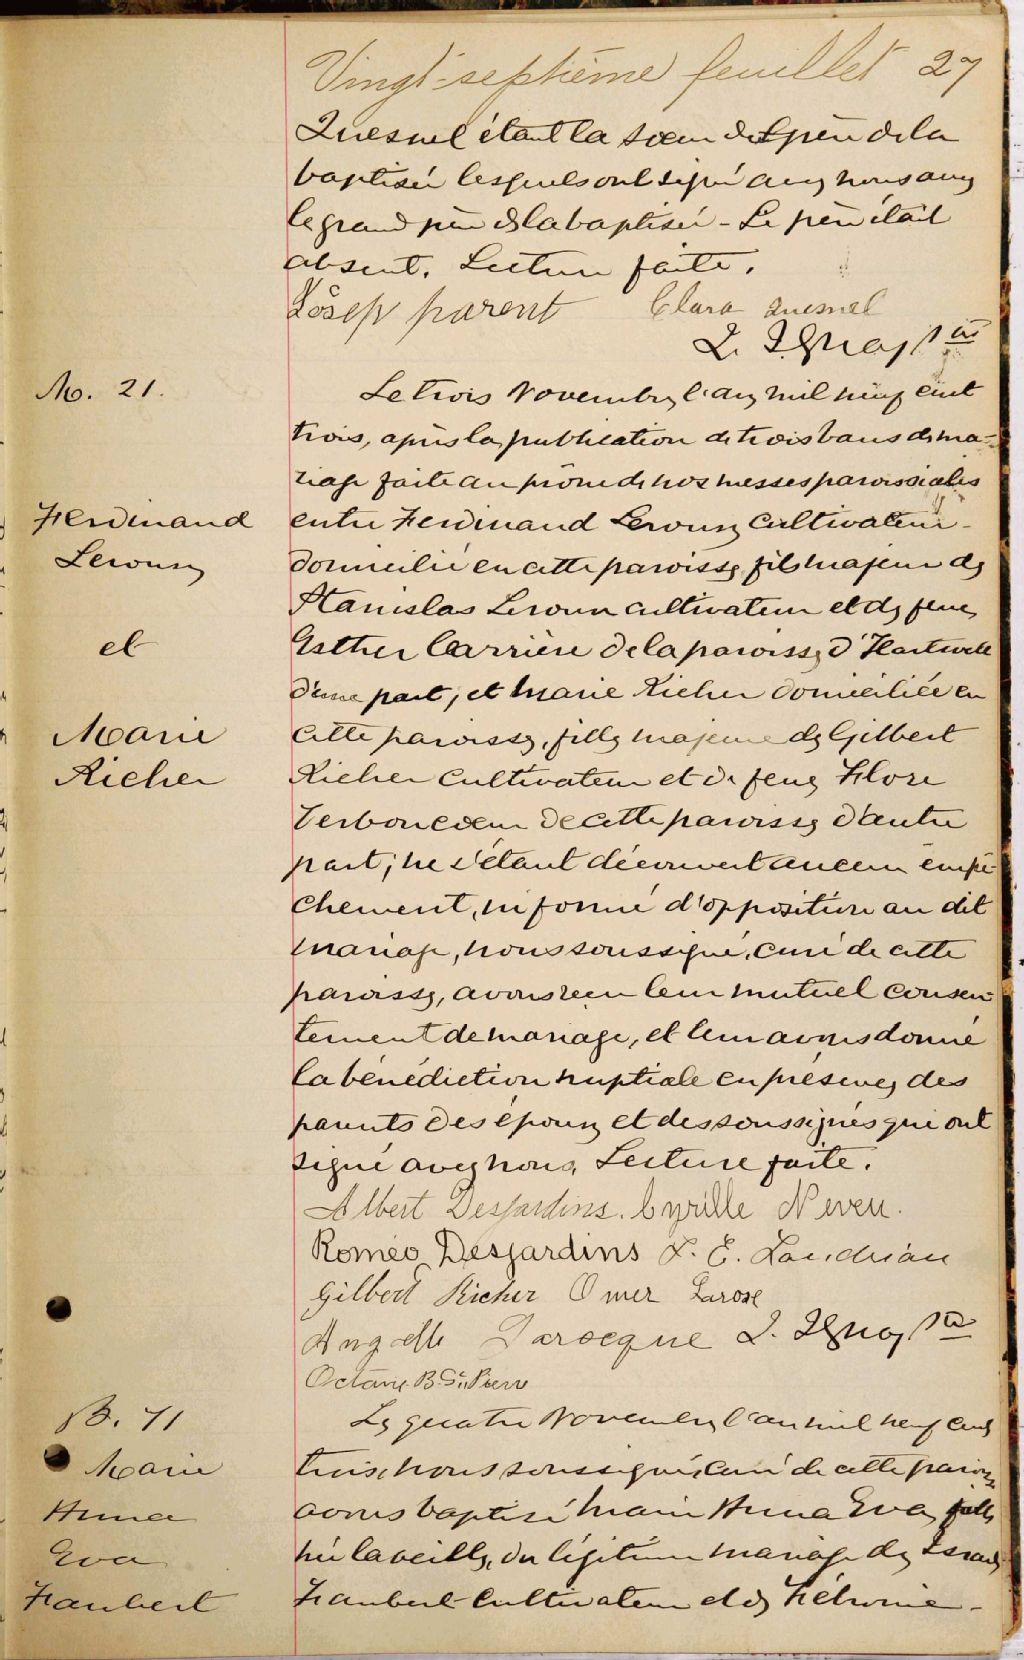 Vingt-septième feuillet 27
Quesnel étant la soeur du père de la
baptisée lesquels ont signé avec nous avec
le grand père de la baptisée - Le père était
absent. Lecture faite.
Josep parent Clara quesnel
Ptre
M. 21. Le trois Novembre l'an mil neuf cent
trois, après la publication de trois bans de ma-
riage faite au prône de nos messes paroissiales
Ferdinand entre Ferdinand Leroux cultivateur
Leroux domicilié en cette paroisse, fils majeur de
Stanislas Leroux cultivateur et de feue
et Esther Carrière de la paroisse d'Hartwell
d'une part, et Marie Richer domiciliée en
Marie cette paroisse, fille majeure de Gilbert
Richer Richer cultivateur et de feue Flore
Verboncoeur de cette paroisse d'autre
part; ne s'étant découvert aucun empê-
chement, ni formé d'opposition au dit
mariage, nous soussigné, curé de cette
paroisse, avons reçu leur mutuel consen-
tement de mariage, et leur avons donné
la bénédiction nuptiale en présence des
parents des époux et des soussignés qui ont
signé avec nous, Lecture faite.
Albert Desjardins. Cyrille Neveu.
Roméo Desjardins L. E. Landriau
Gilbert Richer Omer Larose
Larocque Ptre
Octave B. St. Pierre
B. 71 Le quatre Novembre l'an mil neuf cent
Marie trois, nous soussigné, curé de cette paroisse
Anna avons baptisé Marie Anna Eva, fille
Eva née la veille, du légitime mariage de
Faubert Faubert cultivateur et de